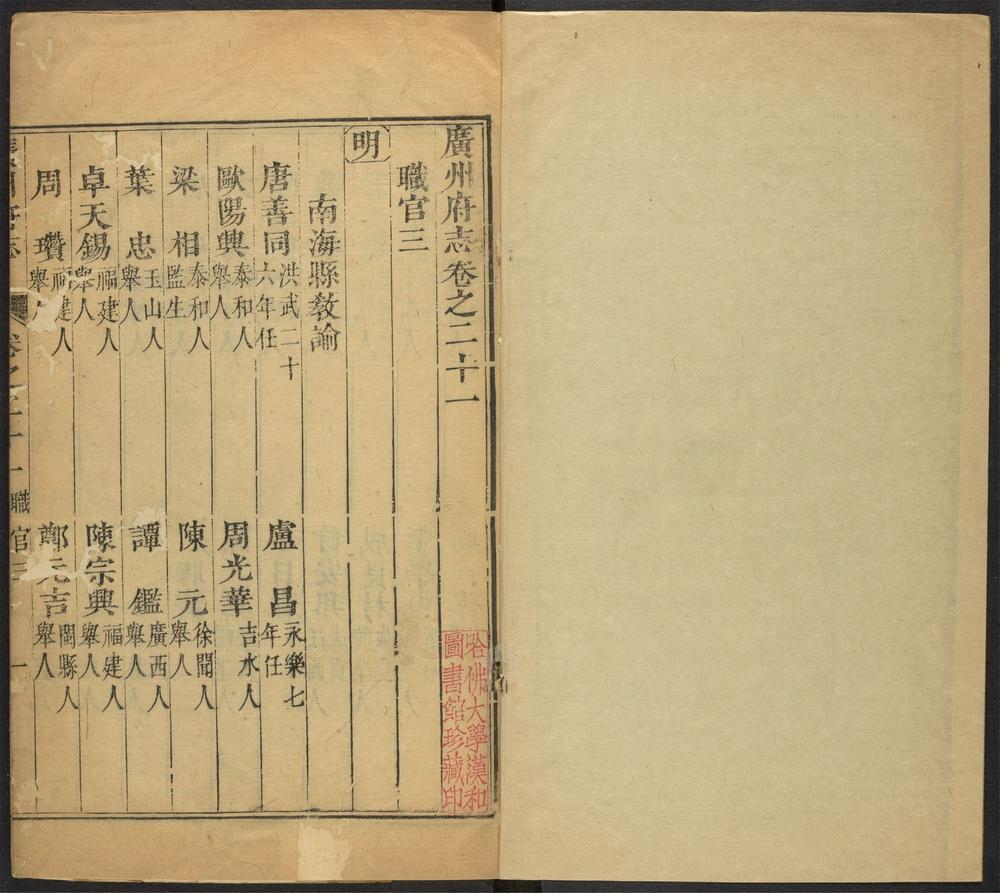 廣州府志卷之二十一
職官三
明
南海縣教諭
唐善同 洪武二十六年任
盧昌 永樂七年任
歐陽興 泰和人舉人
周光華 吉水人
梁相 泰和人監生
陳元 徐聞人舉人
葉忠 玉山人舉人
譚鑑 廣西人舉人
卓天錫 福建人舉人
陳宗興 福建人舉人
周瓚 福建人舉人
鄭元吉 閩縣人舉人
卷之二十一 職官三 一
哈佛大學漢和
圖書館珍藏印